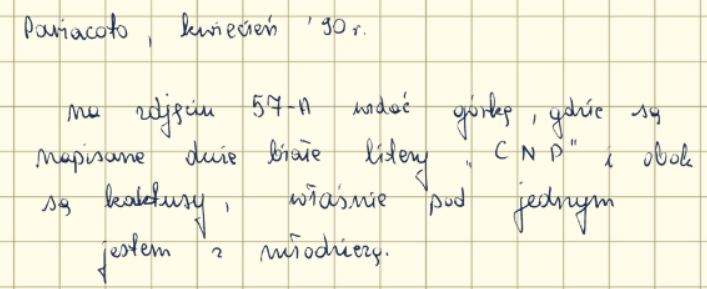 Pariacoto, kwiecień '90 r.
na zdjęciu 57-A widać górkę, gdzie są
napisane duże białe litery „CNP" i obok
są kaktusy, właśnie pod jednym
jestem z młodzieżą.